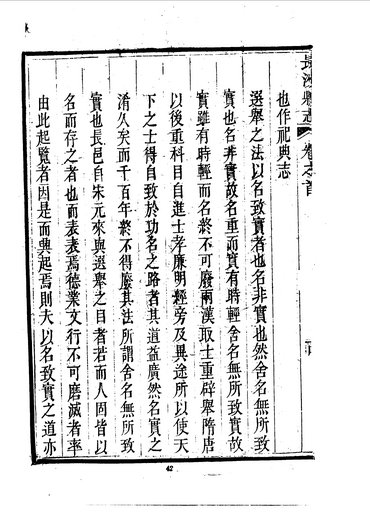 長洲縣志 卷之首
也作祀典志
選舉之法以名致實者也名非實也然舍名無所致
實也名非實故名重而實有時輕舍名無所致實故
實雖有時輕而名終不可廢兩漢取士重辟舉隋唐
以後重科目自進士孝廉明經旁及異途所以使天
下之士得自致於功名之路者其道益廣然名實之
淆久矣而千百年終不得廢其法所謂舍名無所致
實也長邑自宋元來與選舉之目者若而人固皆以
名而存之者也而表表焉德業文行不可磨滅者率
由此起覽者因是而興起焉則夫以名致實之道亦
42